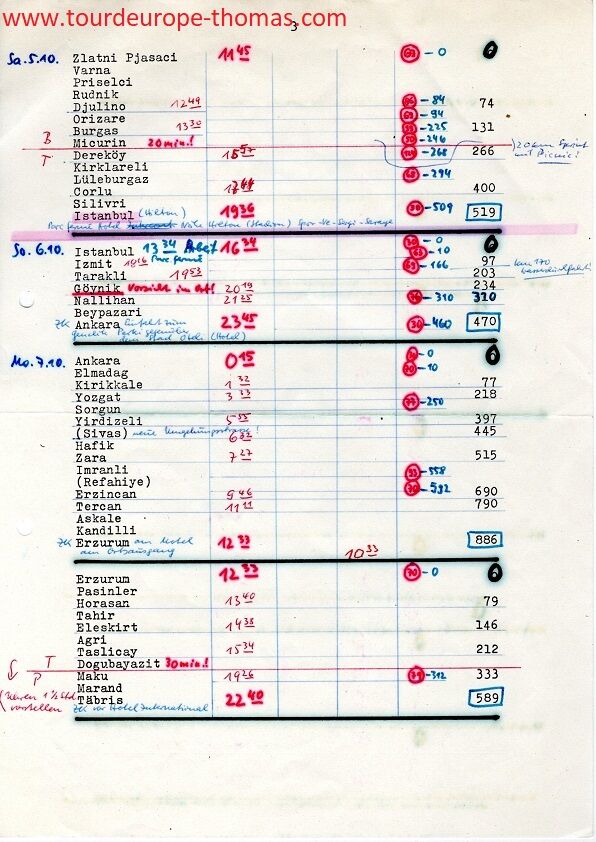 www.tourdeurope-thomas.com
3
Sa. 5.10. Zlatni Pjasaci 11 45 0 0
Varna
Priselci
Rudnik
Djulino 12 49 -84 74
Orizare -94
Burgas 13 30 -225 131
B Micurin 20 min.! -246
T Dereköy 15 57 -268 266 20 km Sprint
Kirklareli mit Picnic!
Lüleburgaz -294
Corlu 17 44 400
Silivri -509
Istanbul (Hilton) 19 36 519
Parc fermé Hotel
So. 6.10. Istanbul 13 34 16 34 -0 0
Izmit 18 16 Parc fermé -10 97
Tarakli 19 53 -166 203 km 170
Göynik Vorsicht im Ort! 20 19 234
Nallihan 21 25 -310 310
Beypazari
ZK Ankara 23 45 -460 470
(Hotel)
Mo. 7.10. Ankara 0 15 -0 0
Elmadag -10
Kirikkale 1 32 77
Yozgat 3 33 -250 218
Sorgun
Yirdizeli 5 55 397
(Sivas) neue Umgehungsstrasse! 6 32 445
Hafik
Zara 7 27 515
Imranli -558
(Refahiye)
Erzincan 9 46 -592 690
Tercan 11 11 790
Askale
Kandilli
ZK Erzurum am Hotel 12 33 886
am Ortsausgang 10 33
Erzurum 12 33 70 -0 0
Pasinler
Horasan 13 40 79
Tahir
Eleskirt 14 38 146
Agri
Taslicay 15 34 212
T Dogubayazit 30 min.!
P Maku 19 26 -312 333
(Uhren 1 ½ Std. Marand
vorstellen Täbris 22 40 589
ZK vor Hotel International